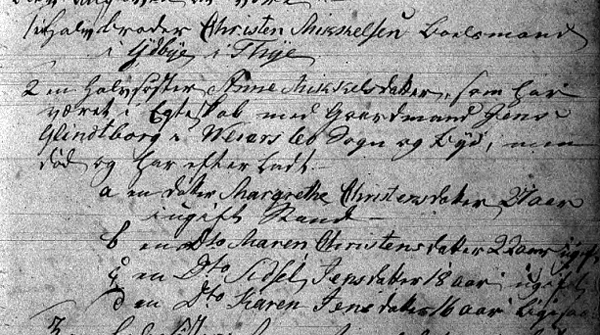 1 en Halvbroder Christen Mikkelsen Boelsmand
i Ydbye i Thye
2 en Halvsøster Anne Mikkelsdatter, som har
været i Egteskab med Gaardmand Jens
Glindtborg i Sogn og Bye, men
død og har efterladt
a en dater Margrethe Christensdatter 27 aar
i ugift Stand
b en Dto Maren Christensdatter 22 aar ugift
c en Dto Sidsel Jensdater 18 aar ugift
d en Dto Karen Jensdater 16 aar ligesaa